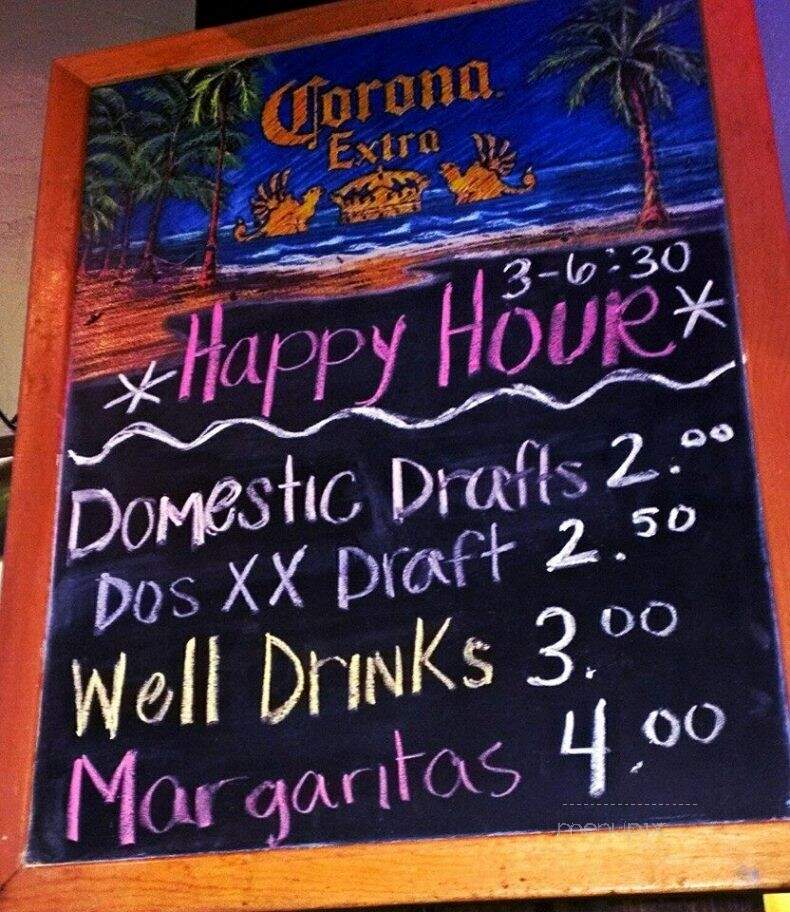 Corona
Extra
3-6:30
*Happy Hour*
Domestic Drafts 2.00
Dos XX Draft 2.50
Well Drinks 3.00
Margaritas 4.00